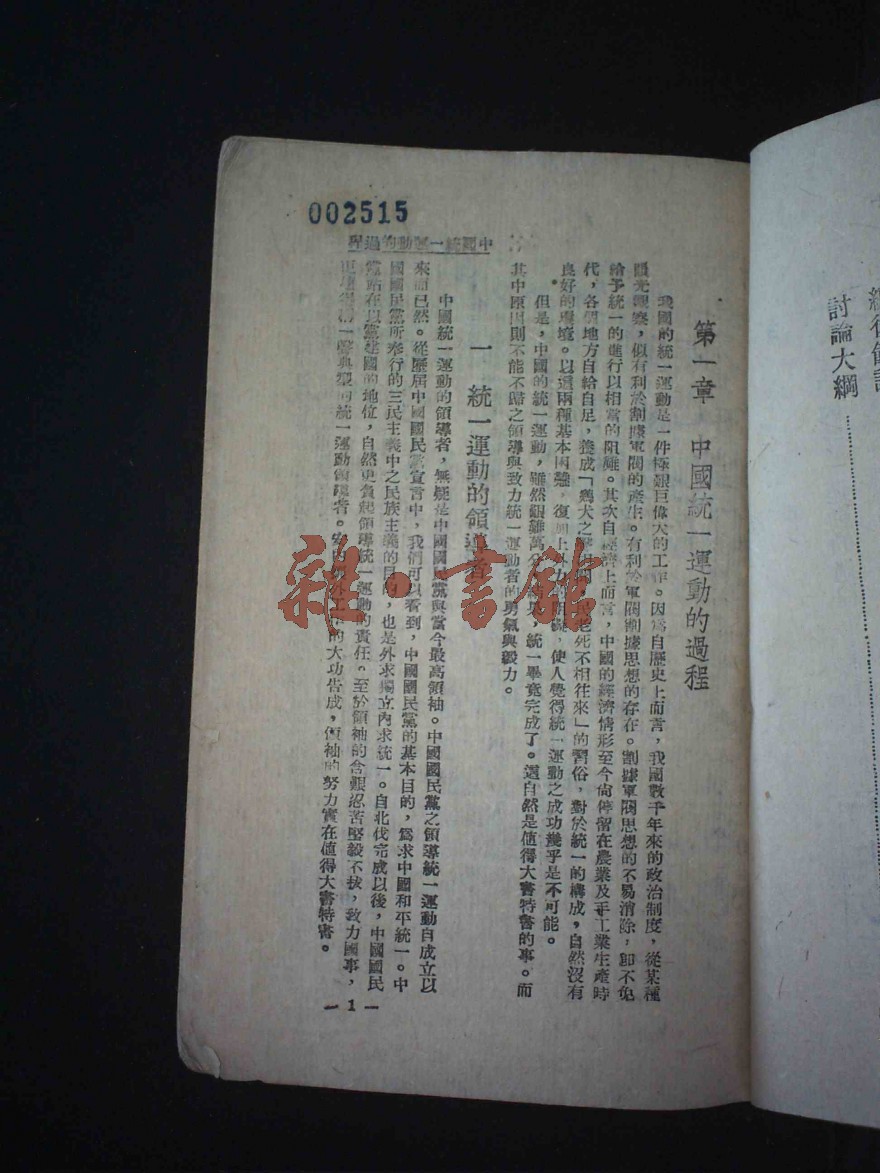 002515
中國統一運動的過程
第一章 中國統一運動的過程
我國的統一運動是一件極艱巨偉大的工作。因為自歷史上而言，我國數千年來的政治制度，從某種
眼光觀察，似有利於割據軍閥的產生。有利於軍閥割據思想的存在。割據軍閥思想的不易消除，卽不免
給予統一的進行以相當的阻礙。其次自經濟上而言，中國的經濟情形至今尙停留在農業及手工業生產時
代，各個地方自給自足，養成「鷄犬之聲相聞，民老死不相往來」的習俗，對於統一的構成，自然沒有
良好的環境。以這兩種基本困難，復加上外力的阻礙，使人覺得統一運動之成功幾乎是不可能。
但是，中國的統一運動，雖然艱難萬分，結果，統一畢竟完成了。這自然是値得大書特書的事。而
其中原因則不能不歸之領導與致力統一運動者的勇氣與毅力。
一 統一運動的領導者
中國統一運動的領導者，無疑是中國國民黨與當今最高領袖。中國國民黨之領導統一運動自成立以
來而已然。從歷屆中國國民黨宣言中，我們可以看到，中國國民黨的基本目的，爲求中國和平統一。中
國國民黨所奉行的三民主義中之民族主義的目的，也是外求獨立內求統一。自北伐完成以後，中國國民
黨站在以黨建國的地位，自然更負起領導統一運動的責任。至於領袖的含艱忍苦堅毅不拔，致力國事，
統一運動領導者。 的大功告成，領袖的努力實在値得大書特書。
— 1 —
討論大綱
雜·書館